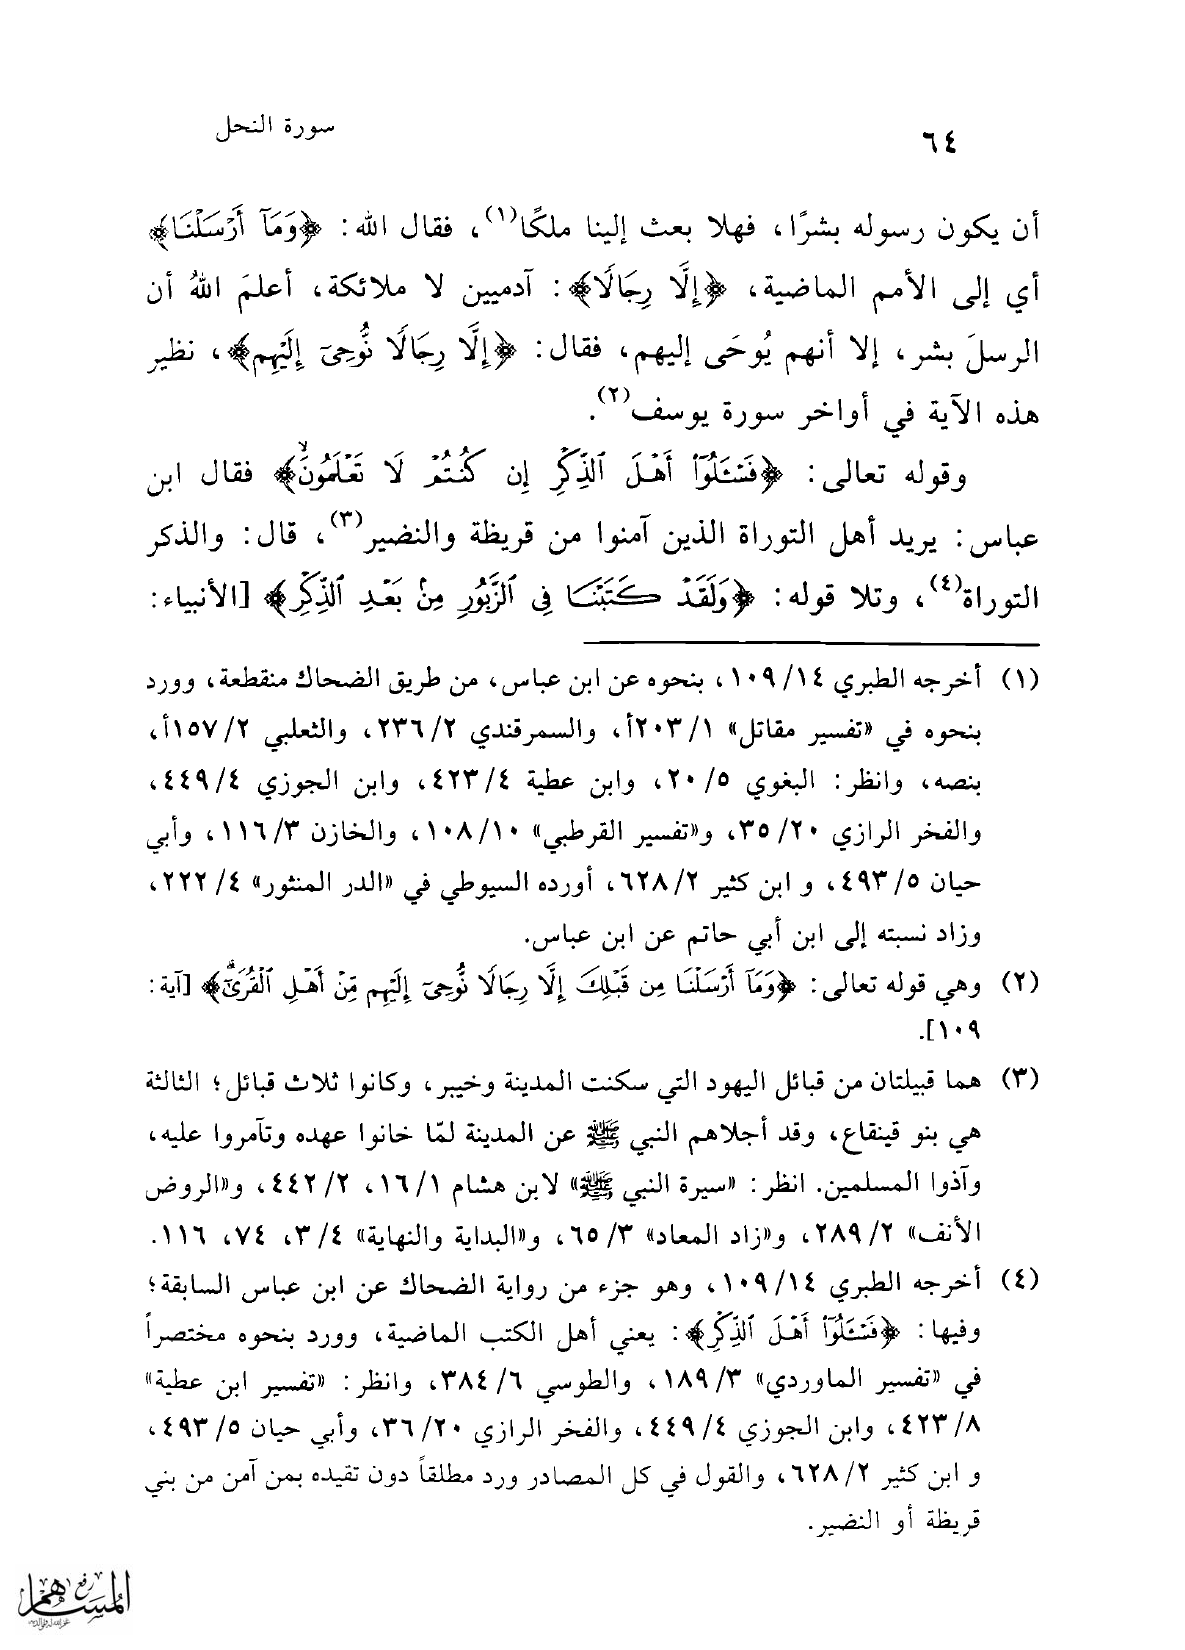 ٦٤
سورة النحل
أن يكون رسوله بشرًا، فهلا بعث إلينا ملكًا(١)، فقال الله: ﴿وَمَآ أَرۡسَلۡنَا﴾
أي إلى الأمم الماضية، ﴿إِلَّا رِجَالًا﴾: آدميين لا ملائكة، أعلمَ اللهُ أن
الرسلَ بشر، إلا أنهم يُوحَى إليهم، فقال: ﴿إِلَّا رِجَالًا نُّوحِىٓ إِلَيۡهِم﴾، نظير
هذه الآية في أواخر سورة يوسف(٢).
وقوله تعالى: ﴿فَسۡـَٔلُوٓاْ أَهۡلَ ٱلذِّكۡرِ إِن كُنتُمۡ لَا تَعۡلَمُونَۙ﴾ فقال ابن
عباس: يريد أهل التوراة الذين آمنوا من قريظة والنضير(٣)، قال: والذكر
التوراة(٤)، وتلا قوله: ﴿وَلَقَدۡ كَتَبۡنَا فِى ٱلزَّبُورِ مِنۢ بَعۡدِ ٱلذِّكۡرِ﴾ [الأنبياء:
(١) أخرجه الطبري ١٤/ ١٠٩، بنحوه عن ابن عباس، من طريق الضحاك منقطعة، وورد
بنحوه في «تفسير مقاتل» ١/ ٢٠٣أ، والسمرقندي ٢/ ٢٣٦، والثعلبي ٢/ ١٥٧أ،
بنصه، وانظر: البغوي ٥/ ٢٠، وابن عطية ٤/ ٤٢٣، وابن الجوزي ٤/ ٤٤٩،
والفخر الرازي ٢٠/ ٣٥، و«تفسير القرطبي» ١٠/ ١٠٨، والخازن ٣/ ١١٦، وأبي
حيان ٥/ ٤٩٣، و ابن كثير ٢/ ٦٢٨، أورده السيوطي في «الدر المنثور» ٤/ ٢٢٢،
وزاد نسبته إلى ابن أبي حاتم عن ابن عباس.
(٢) وهي قوله تعالى: ﴿وَمَآ أَرۡسَلۡنَا مِن قَبۡلِكَ إِلَّا رِجَالًا نُّوحِىٓ إِلَيۡهِم مِّنۡ أَهۡلِ ٱلۡقُرَىٰٓۗ﴾ [آية:
١٠٩].
(٣) هما قبيلتان من قبائل اليهود التي سكنت المدينة وخيبر، وكانوا ثلاث قبائل؛ الثالثة
هي بنو قينقاع، وقد أجلاهم النبي ﷺ عن المدينة لمّا خانوا عهده وتآمروا عليه،
وآذوا المسلمين. انظر: «سيرة النبي ﷺ» لابن هشام ١/ ١٦، ٢/ ٤٤٢، و«الروض
الأنف» ٢/ ٢٨٩، و«زاد المعاد» ٣/ ٦٥، و«البداية والنهاية» ٤/ ٣، ٧٤، ١١٦.
(٤) أخرجه الطبري ١٤/ ١٠٩، وهو جزء من رواية الضحاك عن ابن عباس السابقة؛
وفيها: ﴿فَسۡـَٔلُوٓاْ أَهۡلَ ٱلذِّكۡرِ﴾: يعني أهل الكتب الماضية، وورد بنحوه مختصراً
في «تفسير الماوردي» ٣/ ١٨٩، والطوسي ٦/ ٣٨٤، وانظر: «تفسير ابن عطية»
٨/ ٤٢٣، وابن الجوزي ٤/ ٤٤٩، والفخر الرازي ٢٠/ ٣٦، وأبي حيان ٥/ ٤٩٣،
و ابن كثير ٢/ ٦٢٨، والقول في كل المصادر ورد مطلقاً دون تقيده بمن آمن من بني
قريظة أو النضير.